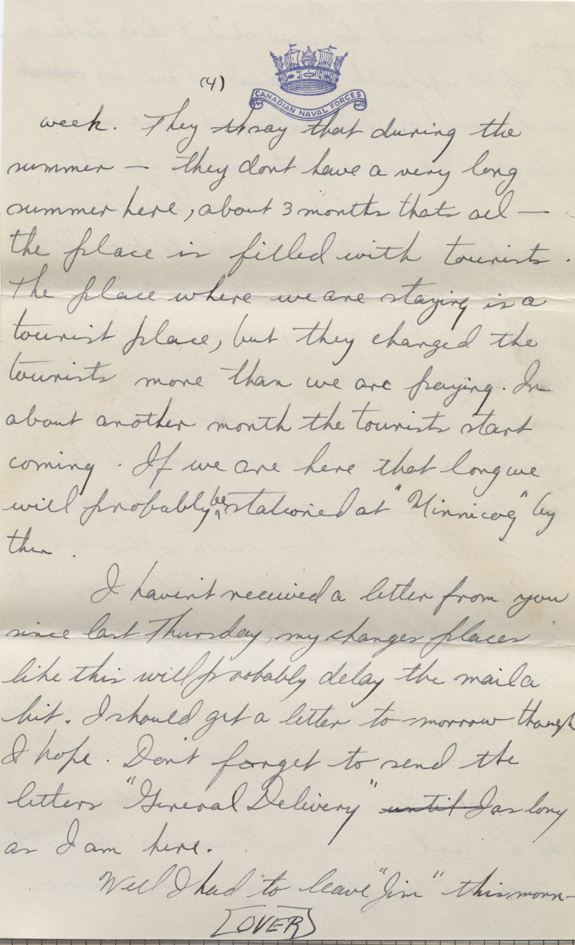 (4)
CANADIAN NAVAL FORCES
week. They say that during the
summer — they dont have a very long
summer here, about 3 months thats all —
the place is filled with tourists.
The place where we are staying is a
tourist place, but they charged the
tourists more than we are paying. In
about another month the tourists start
coming. If we are here that long we
will probably be stationed at " " by
then.
I haven't received a letter from you
since last Thursday, my changes places
like this will probably delay the mail a
bit. I should get a letter to-morrow though
I hope. Don't forget to send the
letters "General Delivery" until I as long
as I am here.
Well I had to leave "Jim" this morn-
[OVER]